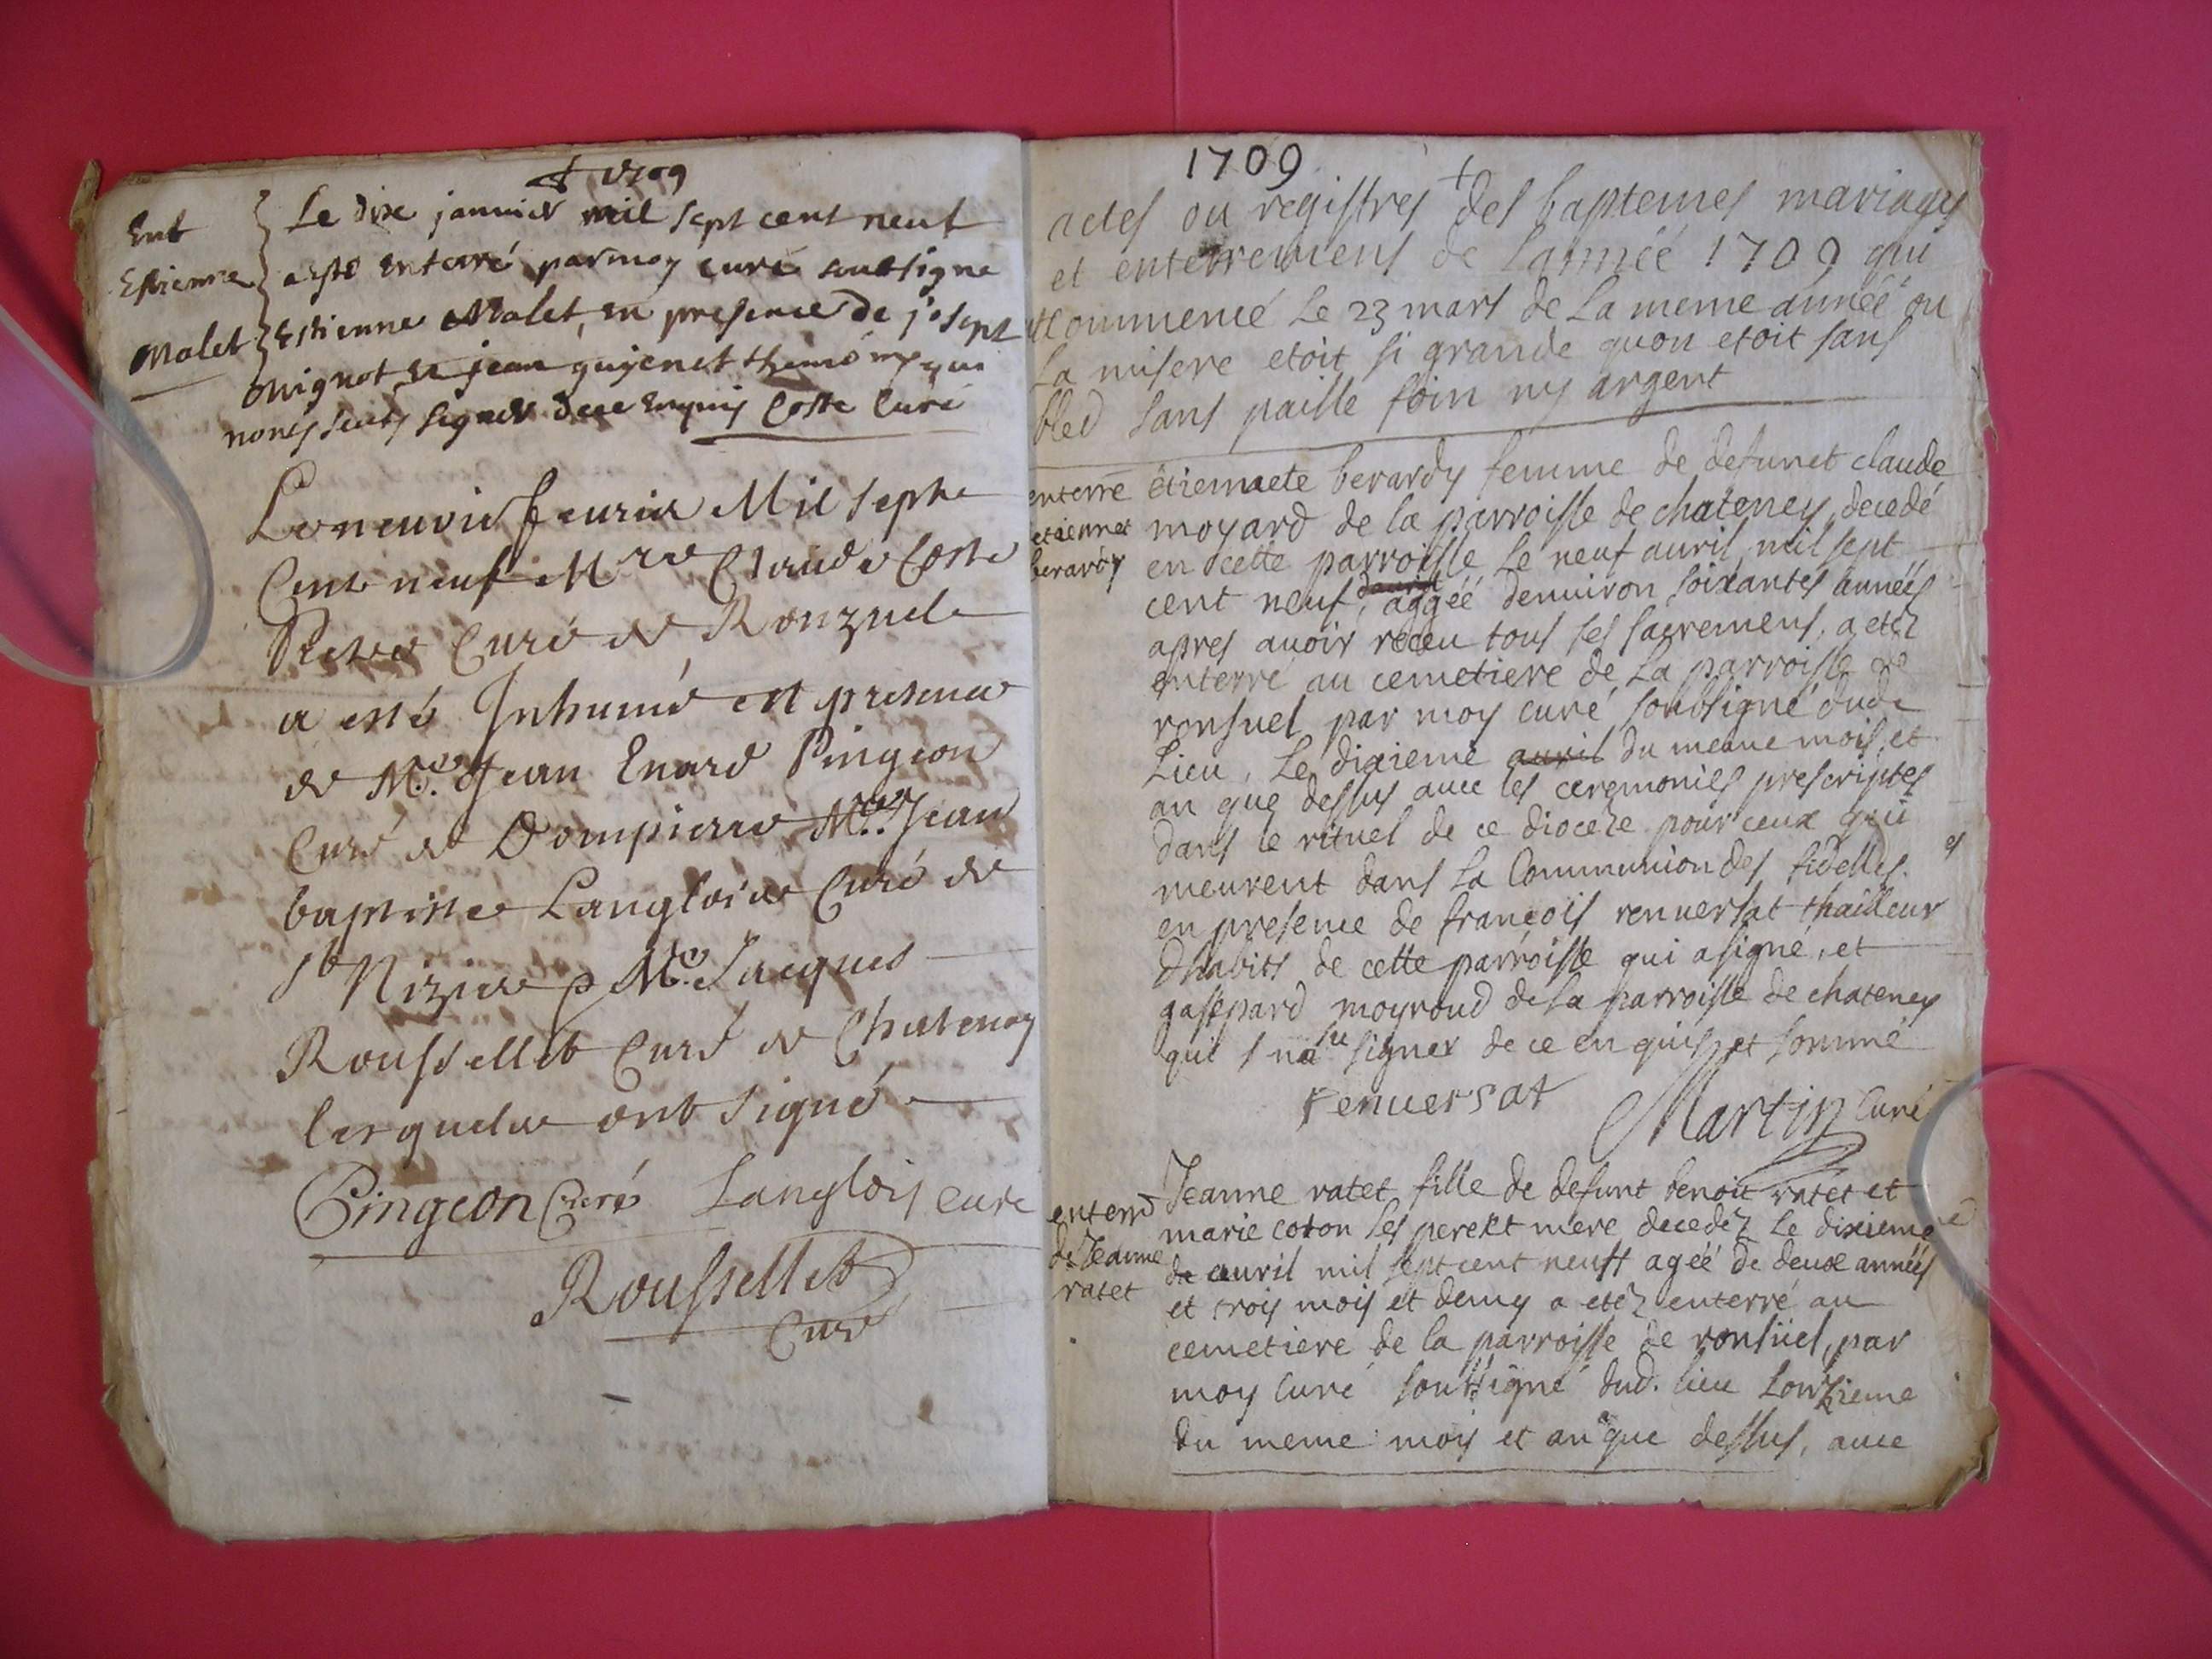 † 1709
Ent
Estienne
Malet
Le dix janvier mil sept cent neuf
a esté enterré par moy curé soubsigne
Estienne Malet, en presence de joseph
Mignot et jean guyenet themoins qui
nonts sceus signer de ce enquis Coste Curé
Le neuvie feurier Mil Sept
Cent neuf Mre Claude Coste
Pretre Curé de Ronzuel
a esté Inhumé en presence
de Mre Jean Enard Pingeon
Curé de Dompierre Mre Jean
baptiste Langlois Curé de
St Nizier & Mre Jacques
Roussellet Curé de Chatenay
lesquels ont signé
Pingeon Curé Langlois cure
Roussellet
Curé
1709
†
actes ou registres des baptemes mariages
et enterremens de lannéé 1709 qui
commencé Le 23 mars de La meme annéé ou
La misere etoit si grande quon etoit sans
bled sans paille foin ny argent
enterré
etiennet
berardy
étiennete berardy femme de defunct claude
moyard de la parroisse de chateney decedé
en cette parroisse Le neuf auril mil sept
cent neuf, aggéé denuiron soixantes années
apres auoir receu tous ses sacremens, a etéz
enterré au cemetiere de La parroisse de
ronsuel par moy curé soubsigné dudt
Lieu, Le dixieme auril du meme mois et
an que dessus auec les ceremonies prescriptes
dans le rituel de ce dioceze pour ceux qui
meurent dans La Communion des fidelles.
en presence de françois renuersat thailleur
dhabits de cette parroisse qui a signé, et
gasepard moyroud de la parroisse de chateney
qui n a sceu signer de ce enquis et sommé
renuersat Martin Curé
enterré
de Jeanne
ratet
Jeanne ratet fille de defunt benoit ratet et
marie coton ses pere et mere decedéz Le dixieme
de auril mil sept cent neuf agéé de deux années
et trois mois et demy a etéz enterré au
cemetiere de la parroisse de ronsuel, par
moy Curé soubsigné dud. lieu Lonzieme
du meme mois et an que dessus, auec